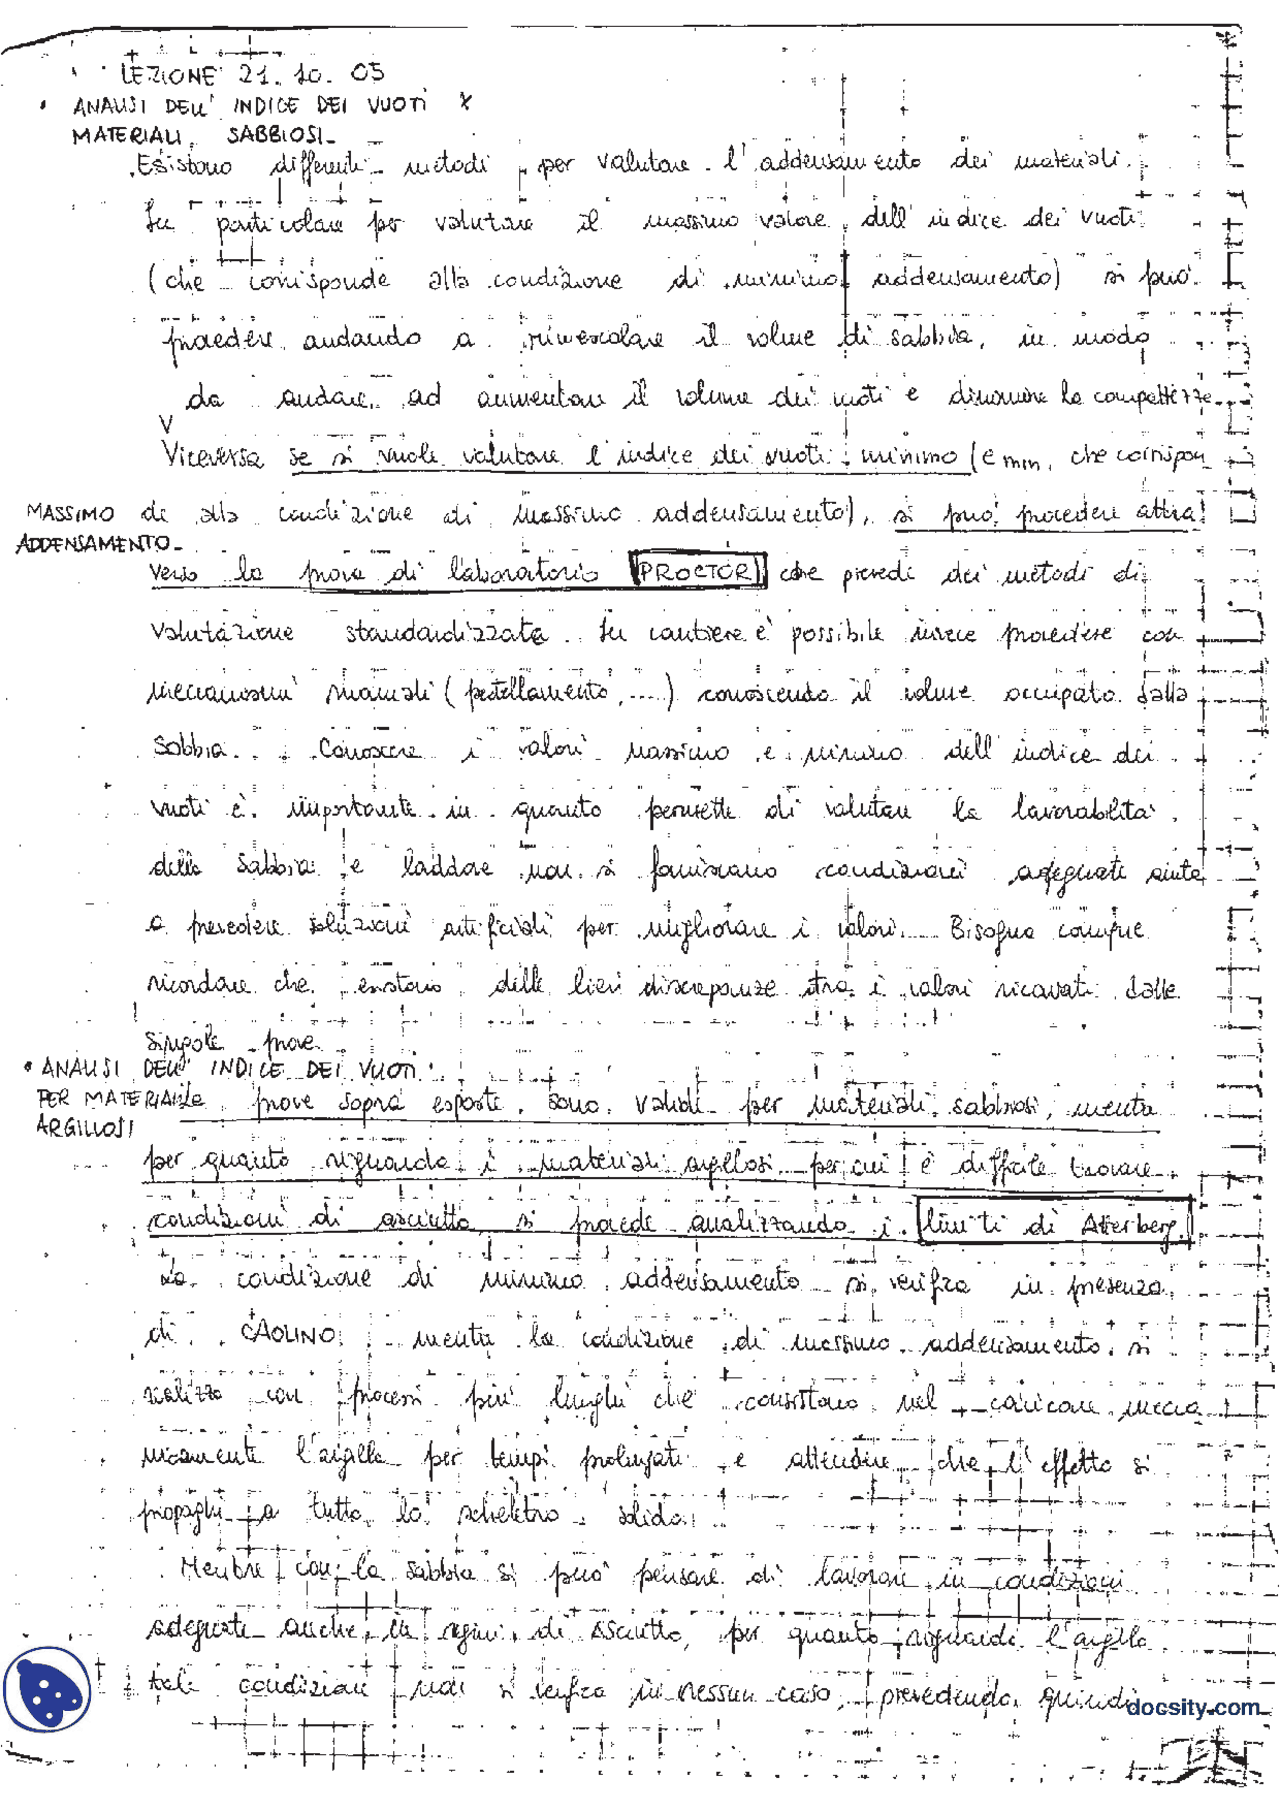 LEZIONE 21.10.05
• ANALISI DELL' INDICE DEI VUOTI X
MATERIALI SABBIOSI_
Esistono differenti metodi per valutare l'addensamento dei materiali.
In particolare per valutare il massimo valore dell'indice dei vuoti
(che corrisponde alla condizione di minimo addensamento) si può
procedere andando a rimescolare il volume di sabbia, in modo
da andare ad aumentare il volume dei vuoti e diminuire la compattezza.
V
Viceversa se si vuole valutare l'indice dei vuoti minimo (e min, che corrispon
MASSIMO de alla condizione di massimo addensamento), si può procedere attra
ADDENSAMENTO_
verso la prova di laboratorio PROCTOR che prevede dei metodi di
valutazione standardizzata. In cantiere è possibile invece procedere con
meccanismi manuali (pestellamento, ....) conoscendo il volume occupato dalla
sabbia. Conoscere i valori massimo e minimo dell'indice dei
vuoti è importante in quanto permette di valutare la lavorabilità
della sabbia e laddove non si forniscano condizioni adeguate aiuta
a prevedere soluzioni artificiali per migliorare i valori. Bisogna comunque
ricordare che esistono delle lievi discrepanze tra i valori ricavati dalle
singole prove
• ANALISI DELL' INDICE DEI VUOTI
PER MATERIALI Le prove sopra esposte sono valide per materiali sabbiosi, mentre
ARGILLOSI
per quanto riguarda i materiali argillosi per cui è difficile trovare
condizioni di asciutto si procede analizzando i limiti di Atterberg.
La condizione di minimo addensamento si verifica in presenza
di CAOLINO mentre la condizione di massimo addensamento si
realizza con processi più lunghi che consistono nel caricare mecca
nicamente l'argilla per tempi prolungati e attendere che l'effetto si
propaghi a tutto lo scheletro solido.
Mentre con la sabbia si può pensare di lavorare in condizioni
adeguate anche in regime di asciutto, per quanto riguarda l'argilla
tali condizioni non si verifica in nessun caso, prevedendo quindi
docsity.com